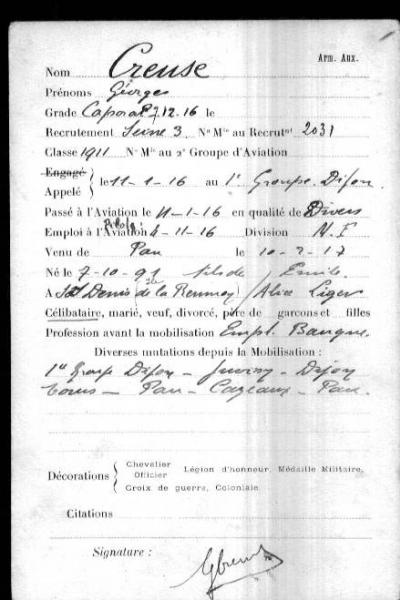 Arm. Aux.
Nom Creuse
Prénoms Georges
Grade Caporal 27.12.16 le
Recrutement Seine 3 Nº Mle au Recrutnt 2031
Classe 1911 Nº Mle au 2e Groupe d'Aviation
Engagé
Appelé } le 11-1-16 au 1r Groupe Dijon
Passé à l'Aviation le 11-1-16 en qualité de Divers
Pilote
Emploi à l'Aviation 4-11-16 Division N. F
Venu de Pau le 10-2-17
Né le 7-10-91 fils de Emile
A St Denis de la Reunion / Alice Liger
Célibataire, marié, veuf, divorcé, père de garçons et filles
Profession avant la mobilisation Empl. Banque
Diverses mutations depuis la Mobilisation :
1er Group Dijon - Juvisy - Dijon
Tours - Pau - Cazeaux - Pau
Décorations { Chevalier
Officier Légion d'honneur, Médaille Militaire,
Croix de guerre, Coloniale.
Citations
Signature :
GCreuse